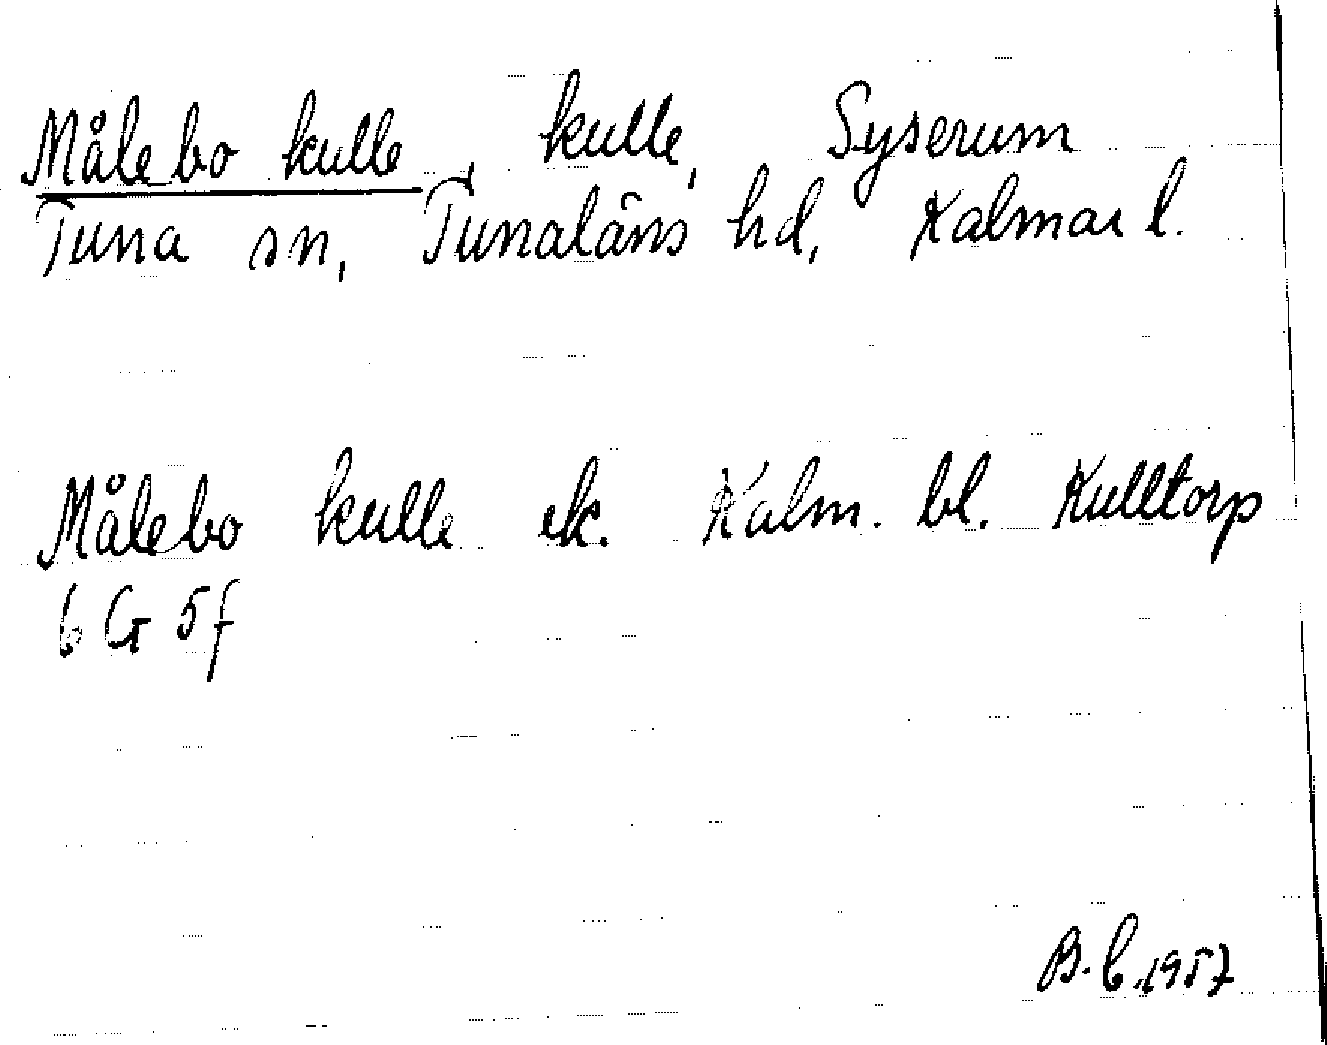 Målebo kulle, kulle, Syserum
Tuna sn, Tunaläns hd, Kalmar l.
Målebo kulle ek. Kalm. bl. Kulltorp
6 G 5f
B. C. 1957